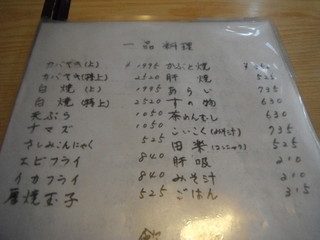 一品料理
カバヤキ(上) ¥1995
カバヤキ(特上) 2520
白焼(上) 1995
白焼(特上) 2520
天ぷら 1050
ナマズ 1050
さしみこんにゃく 525
エビフライ 840
イカフライ 840
厚焼玉子 525
かぶと焼 ¥
肝焼 525
あらい 735
すの物 630
茶わんむし 630
こいこく 735
田楽(こんにゃく) 525
肝吸 210
みそ汁 210
ごはん 315